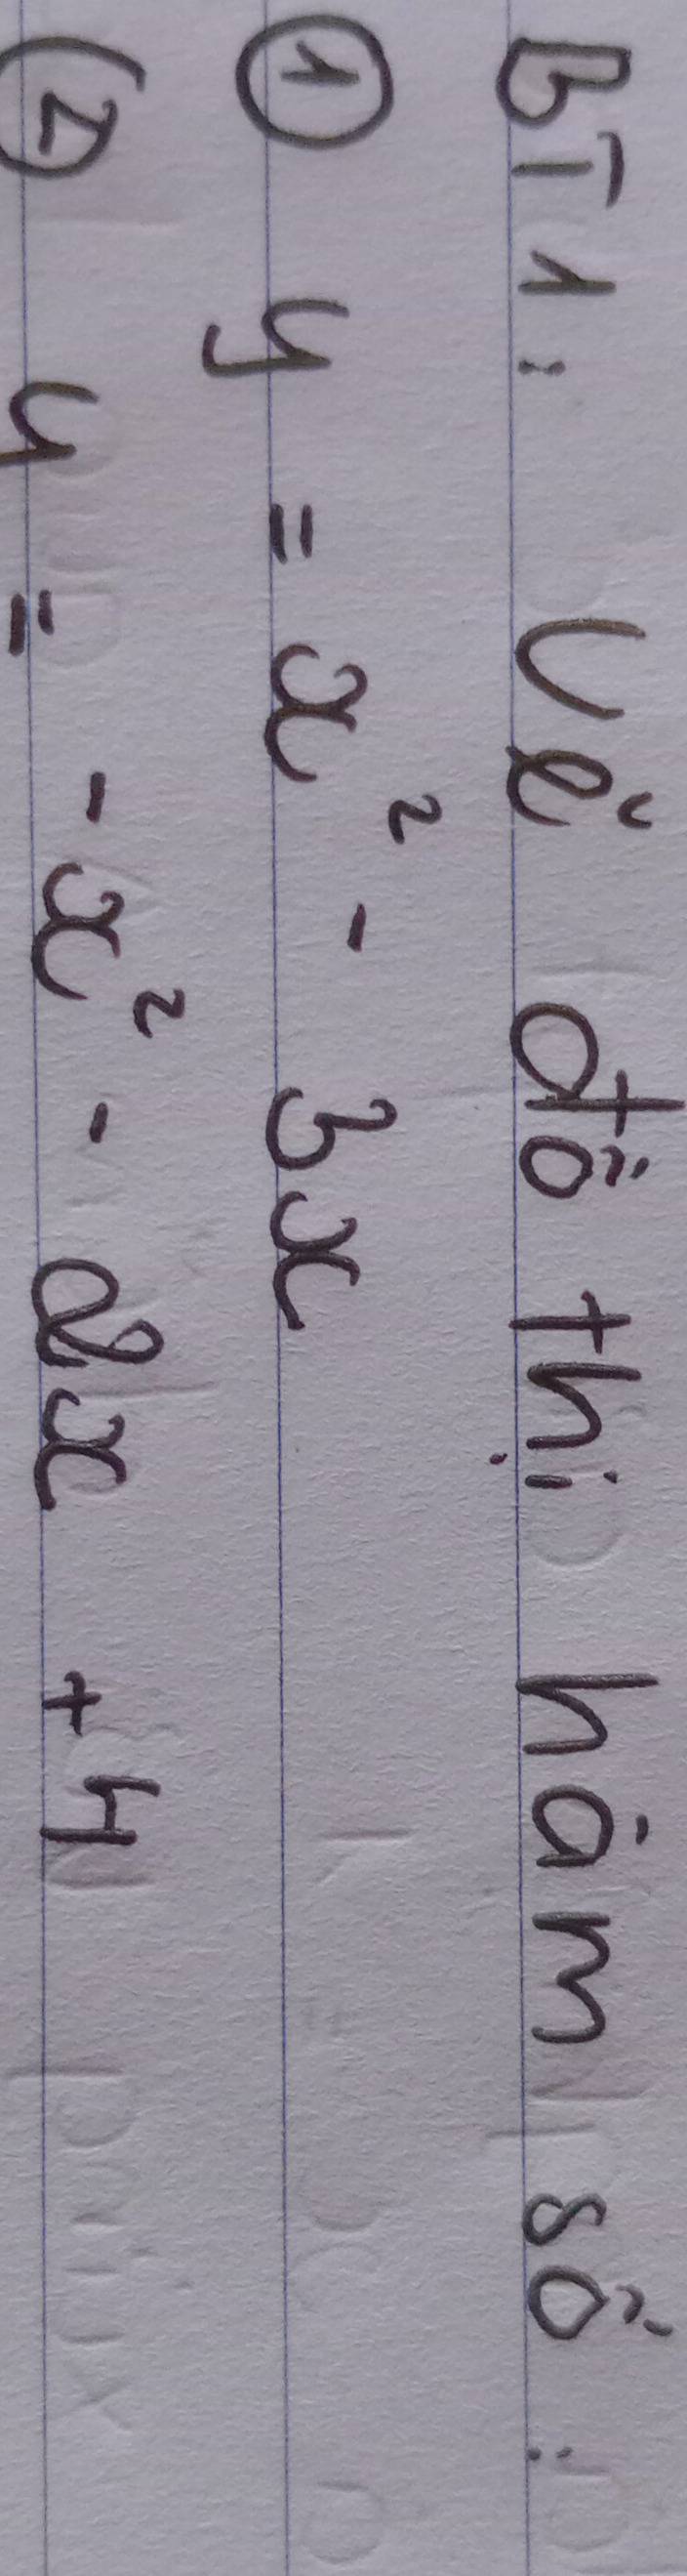 BT1: Vẽ đồ thị hàm số:
① y = x² - 3x
② y = -x² - 2x + 4